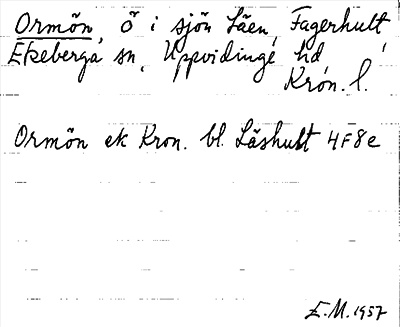 Ormön, ö i sjön Läen, Fagerhult,
Ekeberga sn, Uppvidinge hd,
Kron. l.
Ormön ek Kron. bl. Läshult 4F8e
E.M. 1957